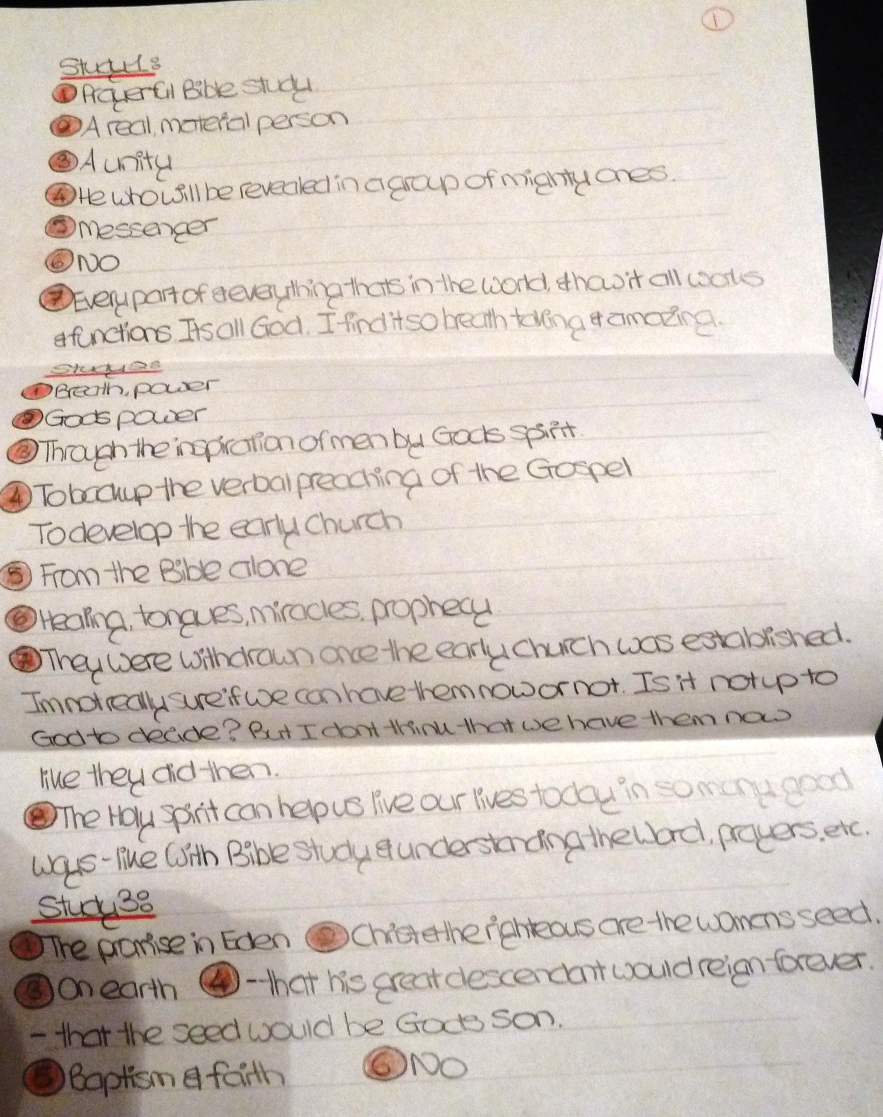 1
Study1:
1 Prayerful Bible Study
2 A real, material person
3 A unity
4 He who will be revealed in a group of mighty ones.
5 Messenger
6 NO
7 Every part of & everything thats in the world, & how it all works
& functions. Its all God. I find it so breath taking & amazing.
Study2:
1 Breath, power
2 Gods power
3 Through the inspiration of men by Gods spirit.
4 To backup the verbal preaching of the Gospel
To develop the early church
5 From the Bible alone
6 Healing, tongues, miracles, prophecy
7 They were withdrawn once the early church was established.
Im not really sure if we can have them now or not. Is it not up to
God to decide? But I dont think that we have them now
like they did then.
8 The Holy Spirit can help us live our lives today in so many good
ways - like with Bible Study & understanding the Word, prayers, etc.
Study3:
1 The promise in Eden 2 Christ & the righteous are the womens seed.
3 On earth 4 - that his great descendant would reign forever.
- that the seed would be Gods Son.
5 Baptism & faith 6 NO